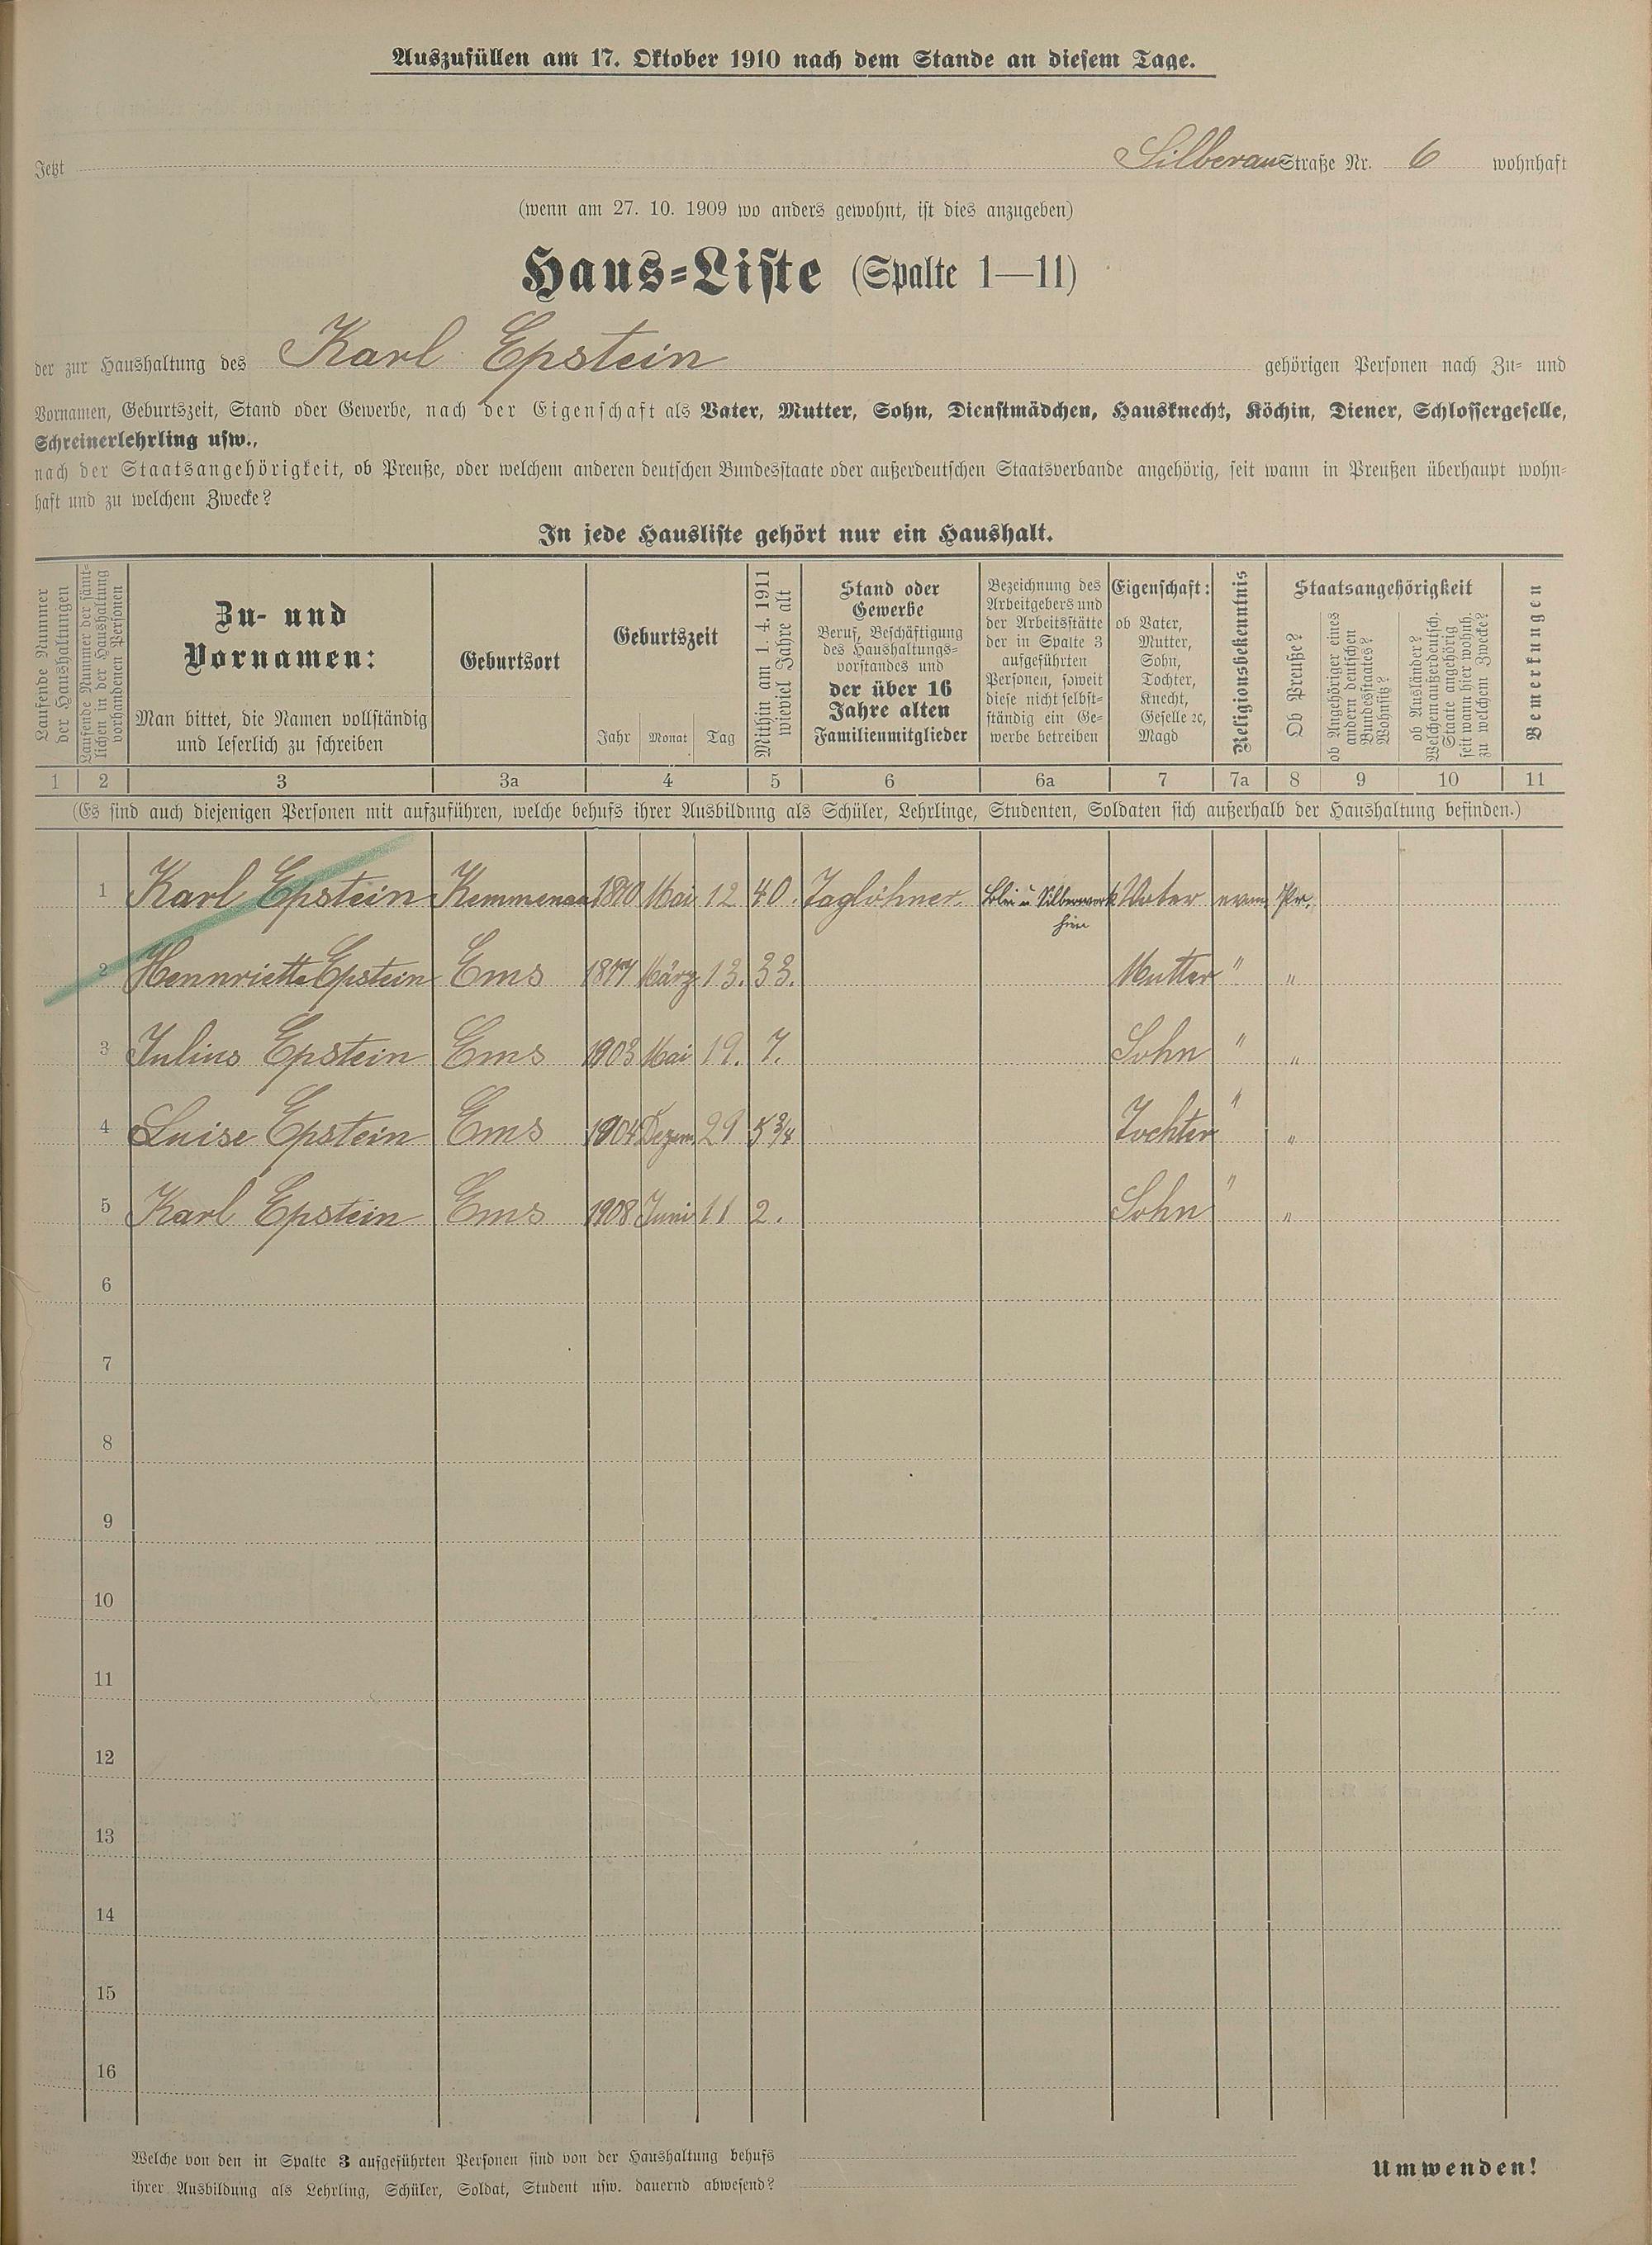 Auszufüllen am 17. Oktober 1910 nach dem Stande an diesem Tage.
Jetzt Silberau Straße Nr. 6 wohnhaft
(wenn am 27. 10. 1909 wo anders gewohnt, ist dies anzugeben)
Haus-Liste (Spalte 1—11)
der zur Haushaltung des Karl Epstein gehörigen Personen nach Zu- und
Vornamen, Geburtszeit, Stand oder Gewerbe, nach der Eigenschaft als Vater, Mutter, Sohn, Dienstmädchen, Hausknecht, Köchin, Diener, Schlossergeselle,
Schreinerlehrling usw.,
nach der Staatsangehörigkeit, ob Preuße, oder welchem anderen deutschen Bundesstaate oder außerdeutschen Staatsverbande angehörig, seit wann in Preußen überhaupt wohn-
haft und zu welchem Zwecke?
In jede Hausliste gehört nur ein Haushalt.
Laufende Nummer
der Haushaltungen
Laufende Nummer der sämt-
lichen in der Haushaltung
vorhandenen Personen
Zu- und
Vornamen:
Man bittet, die Namen vollständig
und leserlich zu schreiben
Geburtsort
Geburtszeit
Jahr Monat Tag
Mithin am 1. 4. 1911
wieviel Jahre alt
Stand oder
Gewerbe
Beruf, Beschäftigung
des Haushaltungs-
vorstandes und
der über 16
Jahre alten
Familienmitglieder
Bezeichnung des
Arbeitgebers und
der Arbeitsstätte
der in Spalte 3
aufgeführten
Personen, soweit
diese nicht selbst-
ständig ein Ge-
werbe betreiben
Eigenschaft:
ob Vater,
Mutter,
Sohn,
Tochter,
Knecht,
Geselle ꝛc,
Magd
Religionsbekenntnis
Staatsangehörigkeit
Ob Preuße?
ob Angehöriger eines
andern deutschen
Bundesstaates?
Wohnsitz?
ob Ausländer?
Welchem außerdeutsch.
Staate angehörig
seit wann hier wohnh.
zu welchem Zwecke?
Bemerkungen
1 2 3 3a 4 5 6 6a 7 7a 8 9 10 11
(Es sind auch diejenigen Personen mit aufzuführen, welche behufs ihrer Ausbildung als Schüler, Lehrlinge, Studenten, Soldaten sich außerhalb der Haushaltung befinden.)
1 Karl Epstein Kemmenau 1870 Mai 12 40. Taglöhner. Blei u Silberwerk Vater evang Pr.
hier
2 Hennriette Epstein Ems 1877 März 13. 33. Mutter " "
3 Julius Epstein Ems 1903 Mai 19. 7. Sohn " "
4 Luise Epstein Ems 1904 Dezem 29 5 3/4 Tochter " "
5 Karl Epstein Ems 1908 Juni 11 2. Sohn " "
6
7
8
9
10
11
12
13
14
15
16
Welche von den in Spalte 3 aufgeführten Personen sind von der Haushaltung behufs
ihrer Ausbildung als Lehrling, Schüler, Soldat, Student usw. dauernd abwesend?
Umwenden!